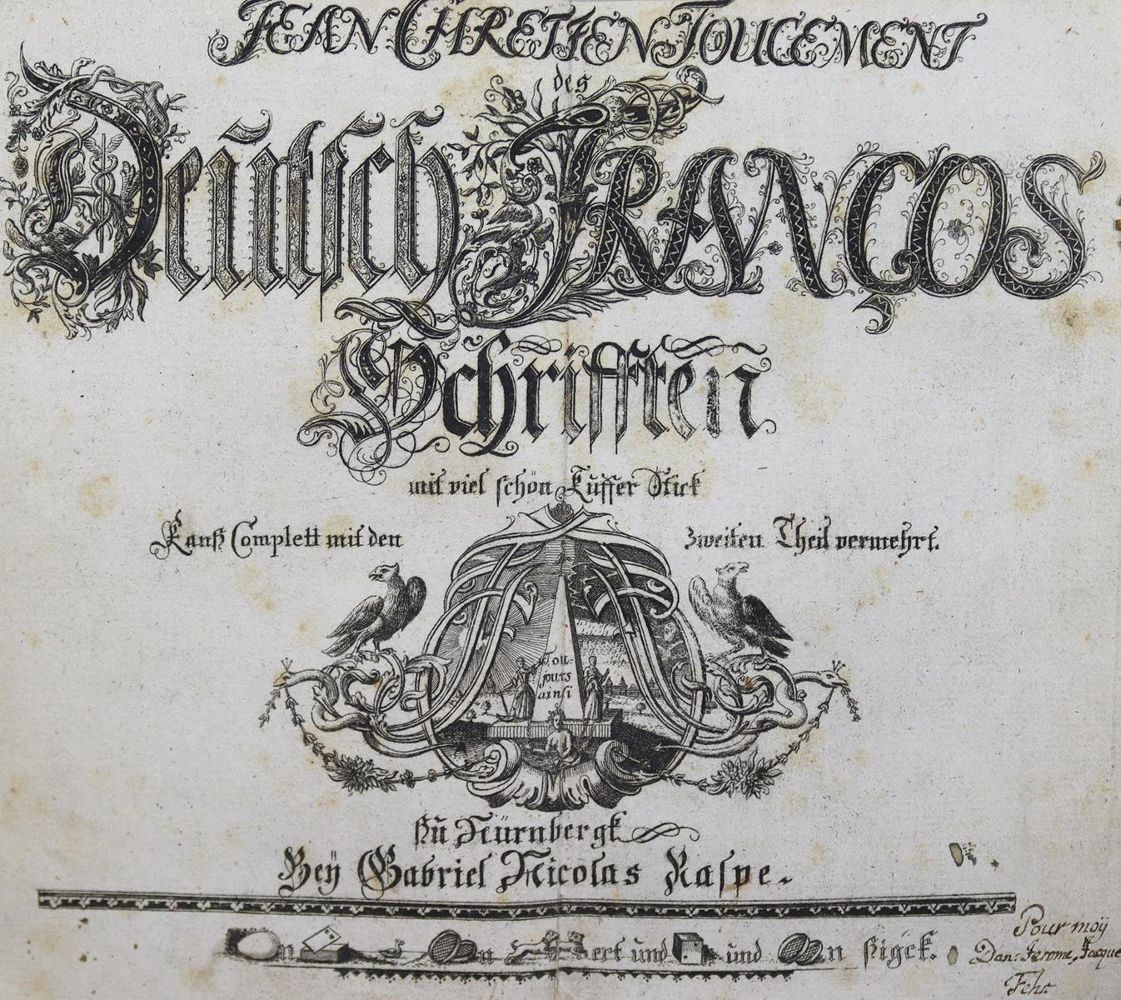 JEAN CHRETIEN TOUCEMENT
des
Deutsch FRANÇOS
Schrifften
mit viel schön Kuffer Stick
Kanß Complett mit den zweiten Theil vermehrt.
Tou-
jours
ainsi
Zu Nürnbergk
Beÿ Gabriel Nicolas Raspe.
n n ert und und n
Pour moÿ
Dan: Jerome, Jacque